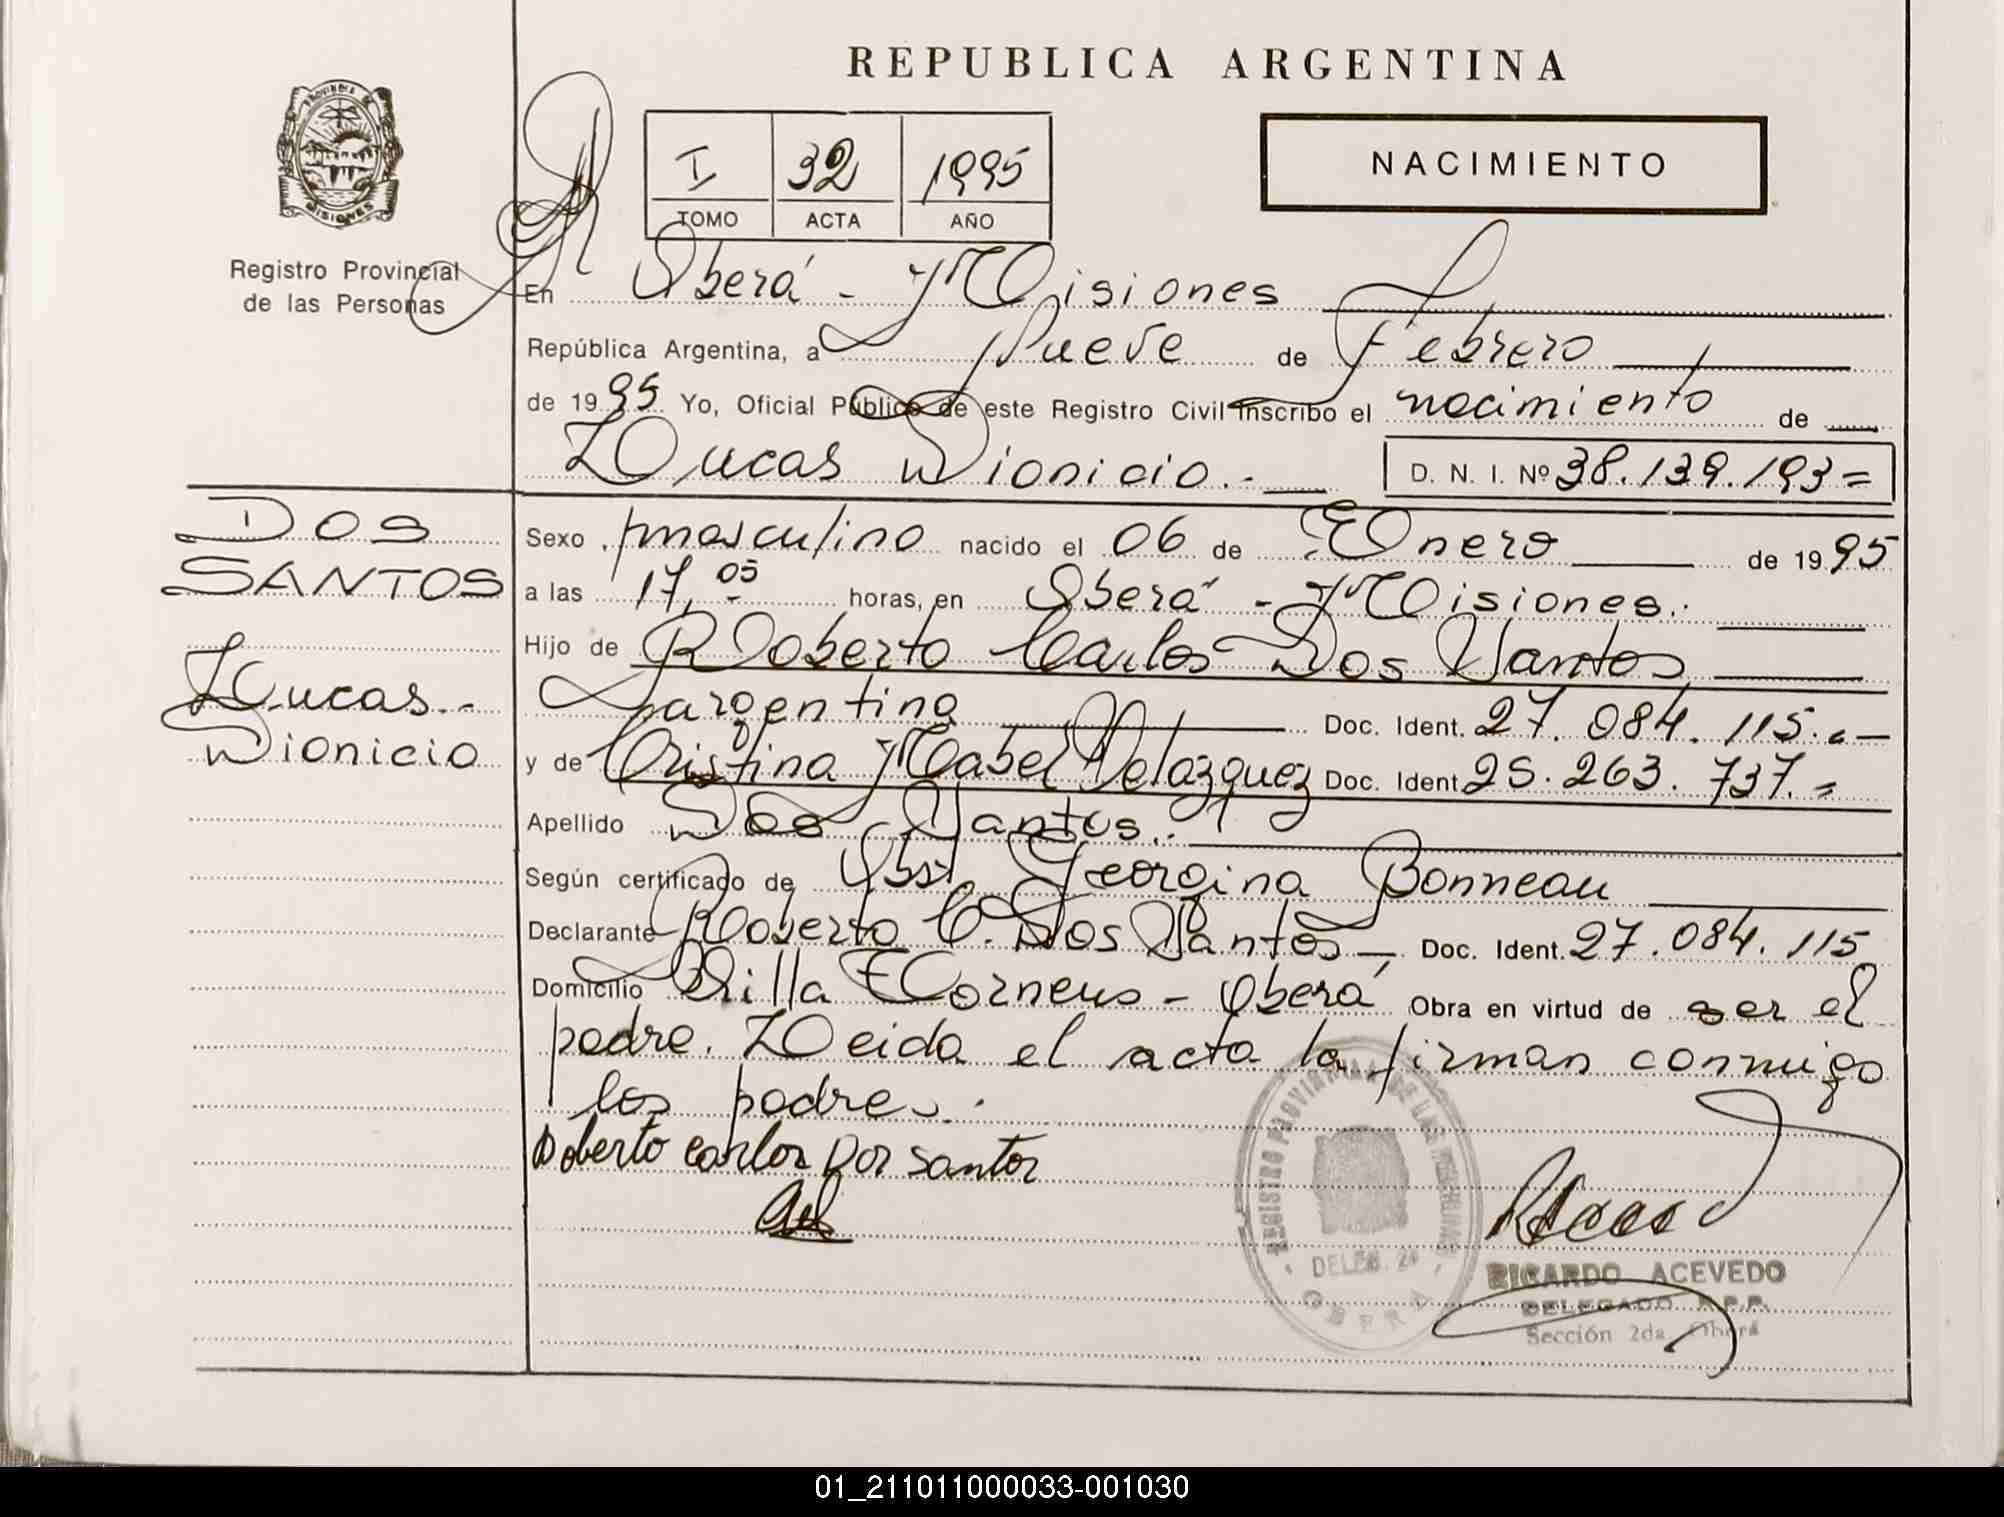 REPUBLICA ARGENTINA
PROVINCIA DE
MISIONES
Registro Provincial
de las Personas
I 32 1995
TOMO ACTA AÑO
NACIMIENTO
En Oberá - Misiones
República Argentina, a Nueve de Febrero
de 1995 Yo, Oficial Público de este Registro Civil inscribo el nacimiento de
Lucas Dionicio.-
D. N. I. Nº 38.139.193=
DOS
SANTOS
Lucas.-
Dionicio
Sexo masculino nacido el 06 de Enero de 1995
a las 17,05 horas, en Oberá - Misiones.
Hijo de Roberto Carlos Dos Santos
argentino Doc. Ident. 27.084.115.-
y de Cristina Mabel Velazquez Doc. Ident. 25.263.737.=
Apellido Dos Santos.
Según certificado de Obst Georgina Bonneau
Declarante Roberto C. Dos Santos Doc. Ident. 27.084.115
Domicilio Villa - Oberá Obra en virtud de ser el
padre. Leida el acta la firman conmigo
los padres.
Roberto Carlos Dos Santos
REGISTRO PROVINCIAL DE LAS PERSONAS
OBERA
RICARDO ACEVEDO
DELEGADO R.P.P.
Sección 2da. Oberá
01_211011000033-001030